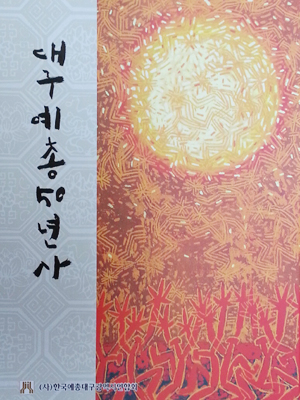 대구예총50년사
(사)한국예총대구광역시연합회